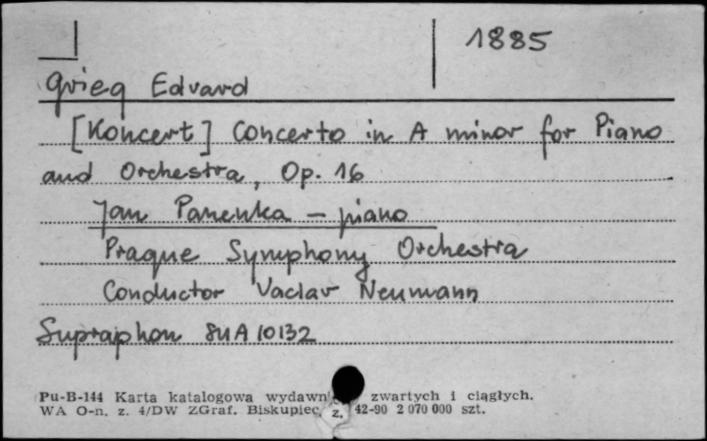 1885
Grieg Edvard
[Koncert] Concerto in A minor for Piano
and Orchestra, Op. 16
Jan Panenka – piano
Prague Symphony Orchestra
Conductor Vaclav Neumann
Supraphon SUA 10132
Pu-B-144 Karta katalogowa zwartych i ciągłych.
WA O-n. z. 4/DW ZGraf. Biskupiec z. 42-90 2 070 000 szt.